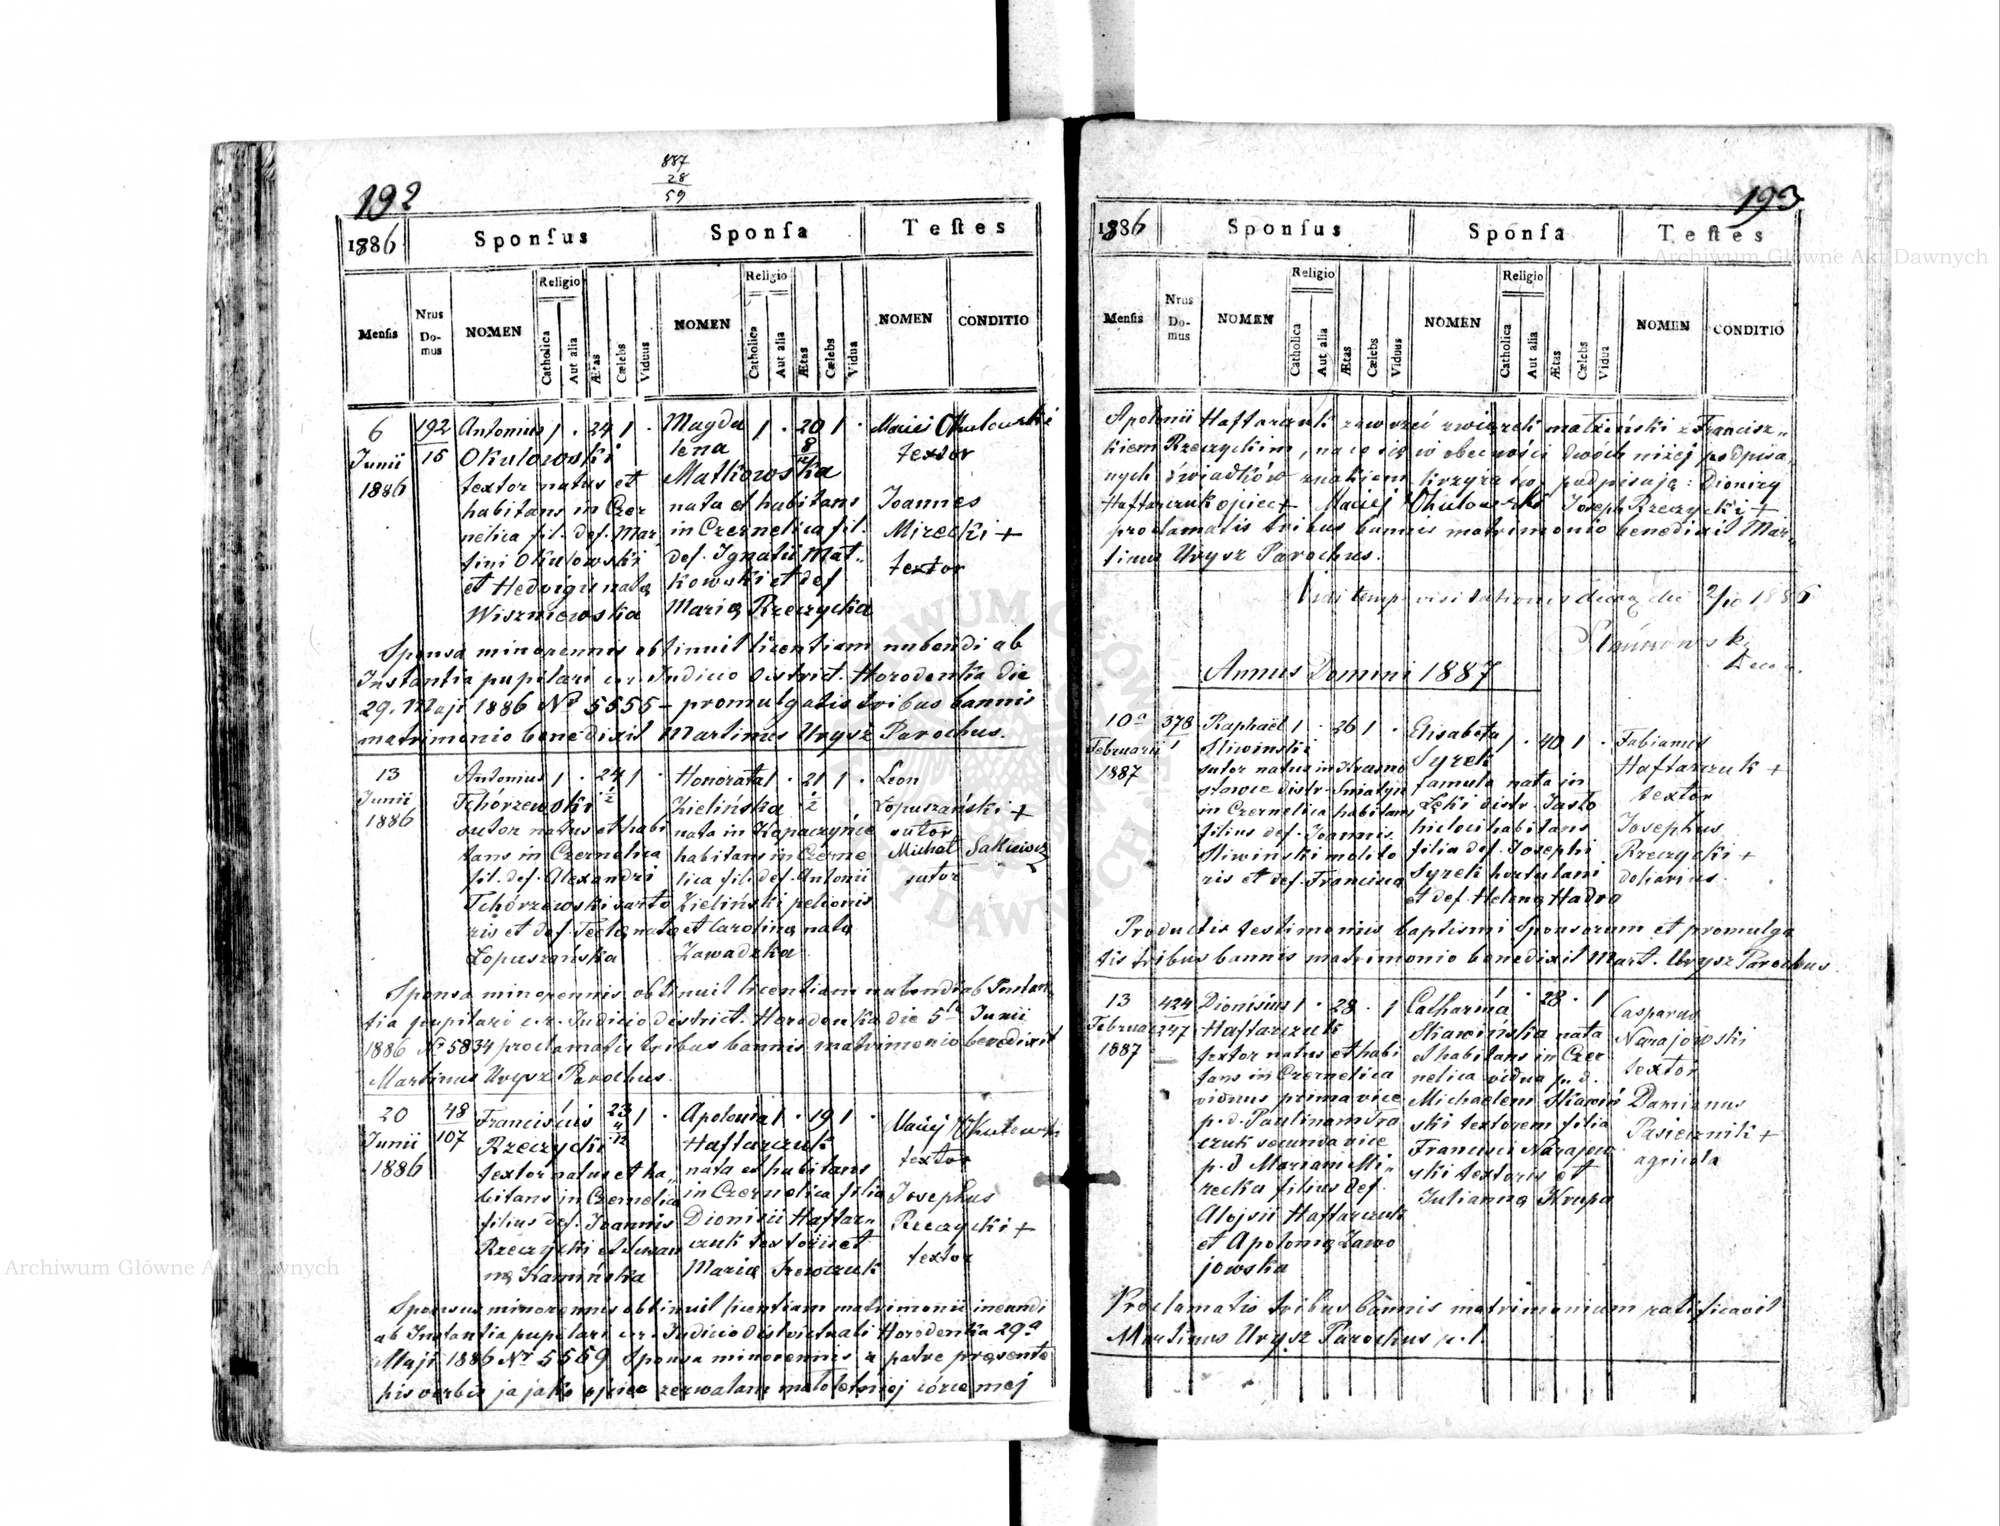 192
887
28
59
1886
Sponsus
Sponsa
Testes
Mensis
Nrus Domus
NOMEN
Religio
Catholica
Aut alia
Ætas
Cælebs
Viduus
NOMEN
Religio
Catholica
Aut alia
Ætas
Cælebs
Vidua
NOMEN
CONDITIO
6
Junii
1886
192
15
Antonius 1 · 24 1 ·
Okulowski
textor natus et
habitans in Czer
nelica fil. def. Mar
tini Okulowski
et Hedvigis nata
Wiszniewska
Magda 1 · 20 1 ·
lena 8
Matkowska
nata et habitans
in Czernelica fil.
def. Ignatii Mat„
kowski et def
Mariæ Rzeczycka
Maciej Okulowski
textor
Joannes
Mirecki +
textor
Sponsa minorennis obtinuit licentiam nubendi ab
Instantia pupilari c.r. Judicio district. Horodenka die
29. Maji 1886 No 5555 – promulgatis tribus bannis
matrimonio benedixit Martinus Urysz Parochus.
13
Junii
1886
Antonius 1 · 24 1 ·
Tchórzewski ½
sutor natus et habi
tans in Czernelica
fil. def. Alexandri
Tchórzewski sarto
ris et def. Teclæ nata
Łopuszańska
Honorata 1 · 21 1 ·
Zielińska ½
nata in Kopaczyńce
habitans in Czerne
lica fil. def. Antonii
Zieliński pelionis
et Carolinæ nata
Zawadzka
Leon
Łopuszański +
sutor
Michał Salkiewicz
sutor
Sponsa minorennis obtinuit licentiam nubendi ab Instan„
tia pupilari c.r. Judicio district. Horodenka die 5ta Junii
1886 No 5834 proclamatis tribus bannis matrimonio benedixit
Martinus Urysz Parochus.
20
Junii
1886
48
107
Franciscus 23 1 ·
Rzeczycki 11/12
textor natus et ha„
bitans in Czernelica
filius def. Joannis
Rzeczycki et Susan
næ Kamińska
Apolonia 1 · 19 1 ·
Haftarczuk
nata et habitans
in Czernelica filia
Dionisii Haftar„
czuk textoris et
Mariæ Szewczuk
Maciej Okulowski
textor
Josephus
Rzeczycki +
textor
Sponsus minorennis obtinuit licentiam matrimonii ineundi
ab Instantia pupilari c.r. Judicio districtuali Horodenka 29a
Maji 1886 Nr 5559 Sponsa minorennis a patre præsente
his verbis ja jako ojciec zezwalam małoletniej córce mej
193
1886
Sponsus
Sponsa
Testes
Mensis
Nrus Domus
NOMEN
Religio
Catholica
Aut alia
Ætas
Cælebs
Viduus
NOMEN
Religio
Catholica
Aut alia
Ætas
Cælebs
Vidua
NOMEN
CONDITIO
Apolonii Haftarczuk zawrzeć związek małżeński z Francisz„
kiem Rzeczyckim, na co się w obecności dwóch niżej podpisa„
nych świadków znakiem krzyża św. podpisują: Dionizy
Haftarczuk ojciec + Maciej Okulowski Joseph Rzeczycki +
proclamatis tribus bannis matrimonio benedixit Mar„
tinus Urysz Parochus.
Vidi temp. visitationis die 2/10 1886
Annus Domini 1887
10a
Februarii
1887
378
1
Raphael 1 · 26 1 ·
Sliwinski
sutor natus in Krasno
stawce distr. Sniatyn
in Czernelica habitans
filius def. Joannis
Sliwinski molito
ris et def. Francisca
Elisabeta 1 · 40 1 ·
Syrek
famula nata in
Łęki distr. Jasto
hic loci habitans
filia def. Josephi
Syrek hortulani
et def. Helenæ Hadro
Fabianus
Haftarczuk +
textor
Josephus
Rzeczycki +
doliarius.
Productis testimoniis baptismi Sponsorum et promulga
tis tribus bannis matrimonio benedixit Mart. Urysz Parochus.
13
Februar
1887
424
247
Dionisius 1 · 28 · 1
Haftarczuk
textor natus et habi
tans in Czernelica
viduus prima vice
p.d. Paulinam Tra
czuk secunda vice
p.d Mariam Mi„
recka filius def.
Alojsii Haftarczuk
et Apoloniæ Zawo
jowska
Catharina · 28 · 1
Skawińska nata
et habitans in Czer
nelica vidua p. d.
Michaelem Skawiń
ski textorem filia
Francisci Narajow
ski textoris et
Juliannæ Krupa
Casparus
Narajowski
textor
Damianus
Pasiecznik +
agricola
Proclamatis tribus bannis matrimonium ratificavit
Martinus Urysz Parochus r.l.
Archiwum Główne Akt Dawnych
Archiwum Główne Akt Dawnych
ARCHIWUM GŁÓWNE AKT DAWNYCH